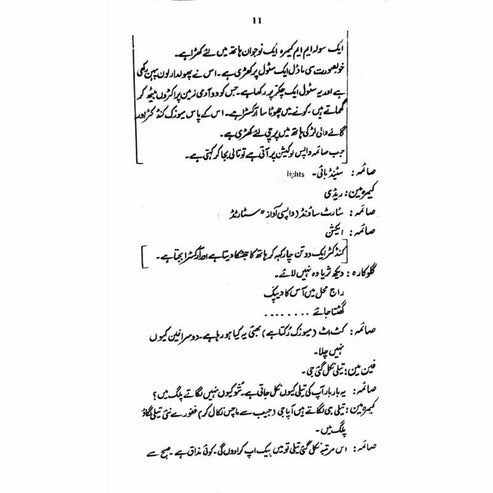 11
ایک سولہ ایم ایم کیمرہ ایک نوجوان ہاتھ میں لئے کھڑا ہے۔
خوبصورت سی ماڈل ایک سٹول پر کھڑی ہے۔ اس نے پھولدار لون پہن رکھی
ہے اور یہ سٹول ایک چکر پر رکھا ہے۔ جس کو دو آدمی زمین پر اکڑوں بیٹھ کر
گھماتے ہیں۔ کونے میں چھوٹا سا آرکسٹرا ہے۔ اس کے پاس میوزک کنڈکٹر اور
گانے والی لڑکی ہاتھ میں پرچی لئے کھڑی ہے۔
جب صائمہ واپس لوکیشن پر آتی ہے تو تالی بجا کر کہتی ہے۔
صائمہ: سٹینڈ بائی۔ lights
کیمرہ مین: ریڈی
صائمہ: سٹارٹ ساؤنڈ (واپسی آواز) سٹارٹڈ
صائمہ: ایکشن
کنڈکٹر ایک دو تین چار کہہ کر ہاتھ کا جھٹکا دیتا ہے اور آرکسٹرا بجتا ہے۔
گلوکارہ: دیکھ ثریا وہ نہیں لائے۔
راج محل میں آس کا دیپک
گھٹتا جائے ........
صائمہ: کٹ اٹ (میوزک رکتا ہے) بھئی یہ کیا ہو رہا ہے۔ دوسرا فین کیوں
نہیں چلا۔
فین مین: تیلی نکل گئی جی۔
صائمہ: یہ بار بار آپ کی تیلی کیوں نکل جاتی ہے۔ شو کیوں نہیں لگاتے پلگ میں؟
کیمرہ مین: تیلی ہی لگاتے ہیں آپا جی (جیب سے ماچس نکال کر) غفورے نئی تیلی لگاؤ
پلگ میں۔
صائمہ: اس مرتبہ نکل گئی تیلی تو میں پیک اپ کرا دوں گی۔ کوئی مذاق ہے۔ صبح سے